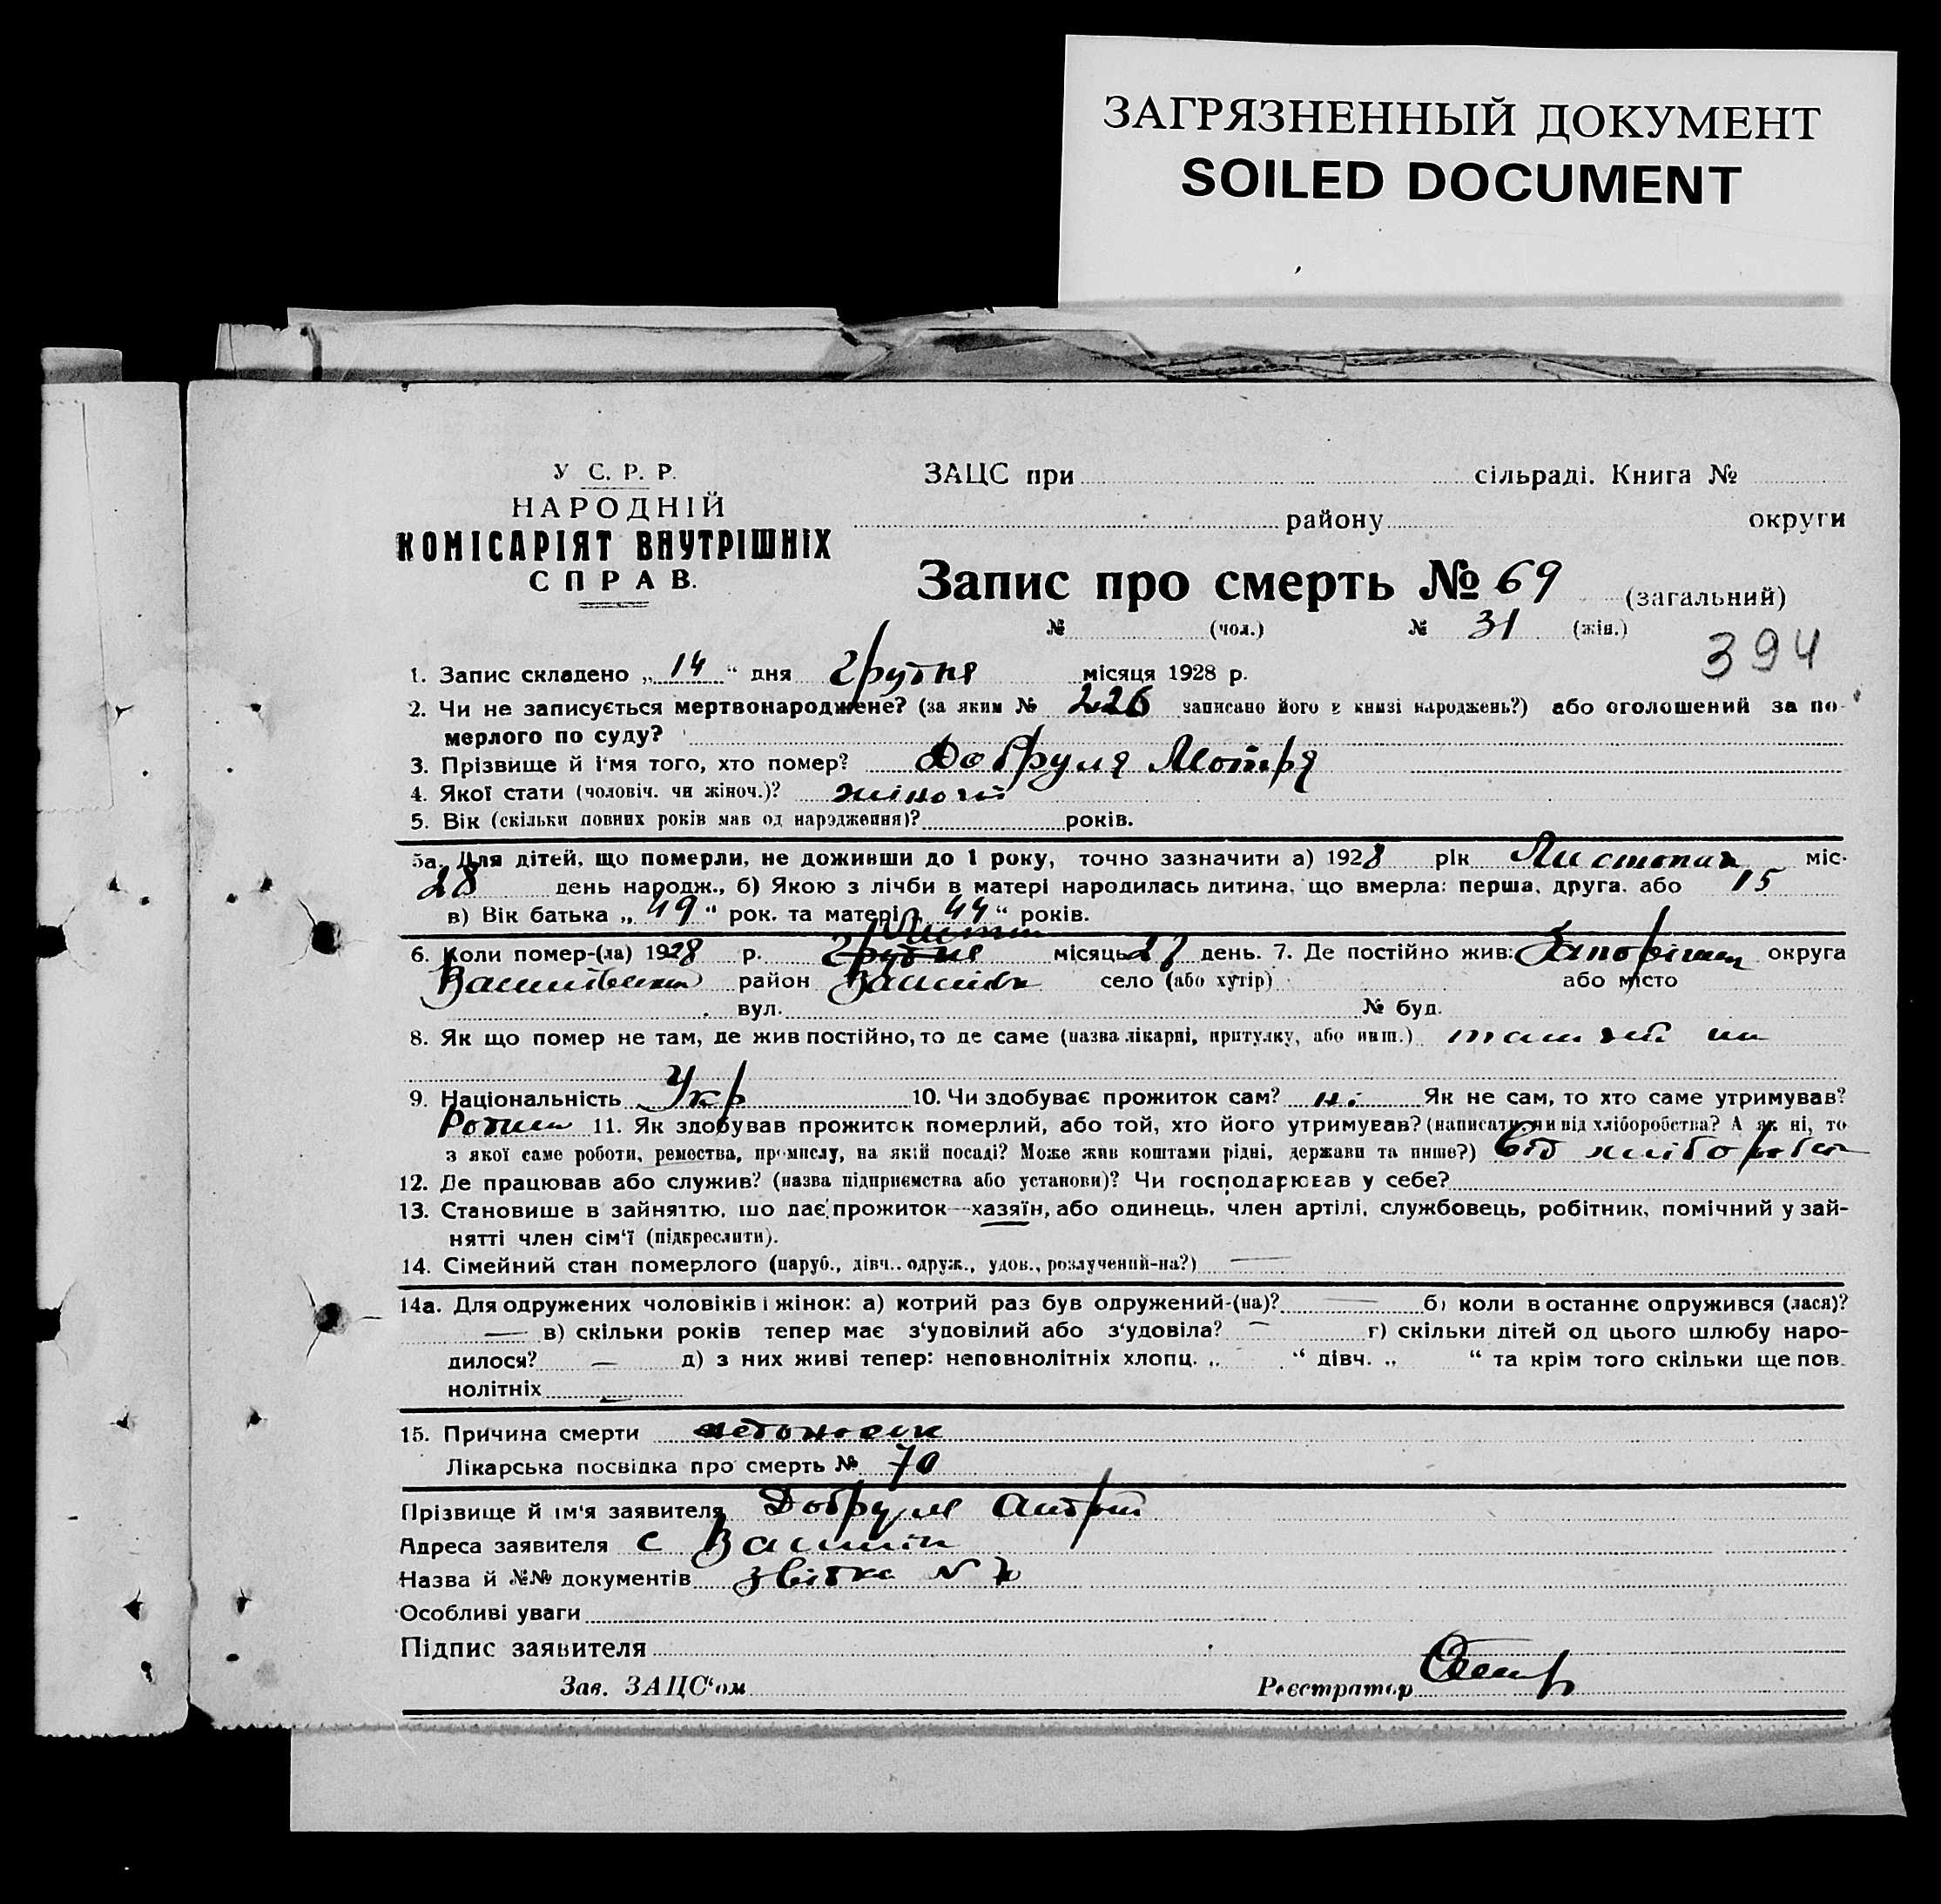 ЗАГРЯЗНЕННЫЙ ДОКУМЕНТ
SOILED DOCUMENT
У С. Р. Р.
НАРОДНІЙ
КОМІСАРІЯТ ВНУТРІШНІХ
СПРАВ.
ЗАЦС при сільраді. Книга №
району округи
Запис про смерть № 69 (загальний)
№ (чол.) № 31 (жін.)
394
1. Запис складено „ 14 “ дня Грудня місяця 1928 р.
2. Чи не записується мертвонароджене? (за яким № 226 записано його в книзі народжень?) або оголошений за по-
мерлого по суду?
3. Прізвище й ім'я того, хто помер? Добруля Мотря
4. Якої стати (чоловіч. чи жіноч.)? жіночій
5. Вік (скільки повних років мав од народження)? років.
5а. Для дітей, що померли, не доживши до 1 року, точно зазначити а) 1928 рік Листопад міс.
28 день народж., б) Якою з лічби в матері народилась дитина, що вмерла: перша, друга, або 15
в) Вік батька „ 49 “ рок. та матері „ 44 “ років.
6. Коли помер-(ла) 1928 р. Грудня місяць день. 7. Де постійно жив: Запоріжжя округа
район село (або хутір) або місто
вул. № буд.
8. Як що помер не там, де жив постійно, то де саме (назва лікарні, притулку, або инш.)
9. Національність Укр 10. Чи здобуває прожиток сам? ні Як не сам, то хто саме утримував?
11. Як здобував прожиток померлий, або той, хто його утримував? (написати, чи від хліборобства? А як ні, то
з якої саме роботи, ремества, промислу, на якій посаді? Може жив коштами рідні, держави та инше?) від
12. Де працював або служив? (назва підприємства або установи)? Чи господарював у себе?
13. Становище в зайняттю, що дає прожиток—хазяїн, або одинець, член артілі, службовець, робітник, помічний у зай-
нятті член сім'ї (підкреслити).
14. Сімейний стан померлого (паруб., дівч., одруж., удов., розлучений-на?) —
14а. Для одружених чоловіків і жінок: а) котрий раз був одружений-(на)? — б) коли востаннє одружився (лася)?
— в) скільки років тепер має з'удовілий або з'удовіла? — г) скільки дітей од цього шлюбу наро-
дилося? — д) з них живі тепер: неповнолітніх хлопц. „ “ дівч. „ “ та крім того скільки ще пов.
нолітніх —
15. Причина смерти недоносок
Лікарська посвідка про смерть № 70
Прізвище й ім'я заявителя Добруля
Адреса заявителя с
Назва й №№ документів звітка N
Особливі уваги
Підпис заявителя
Зав. ЗАЦС'ом Реєстратор